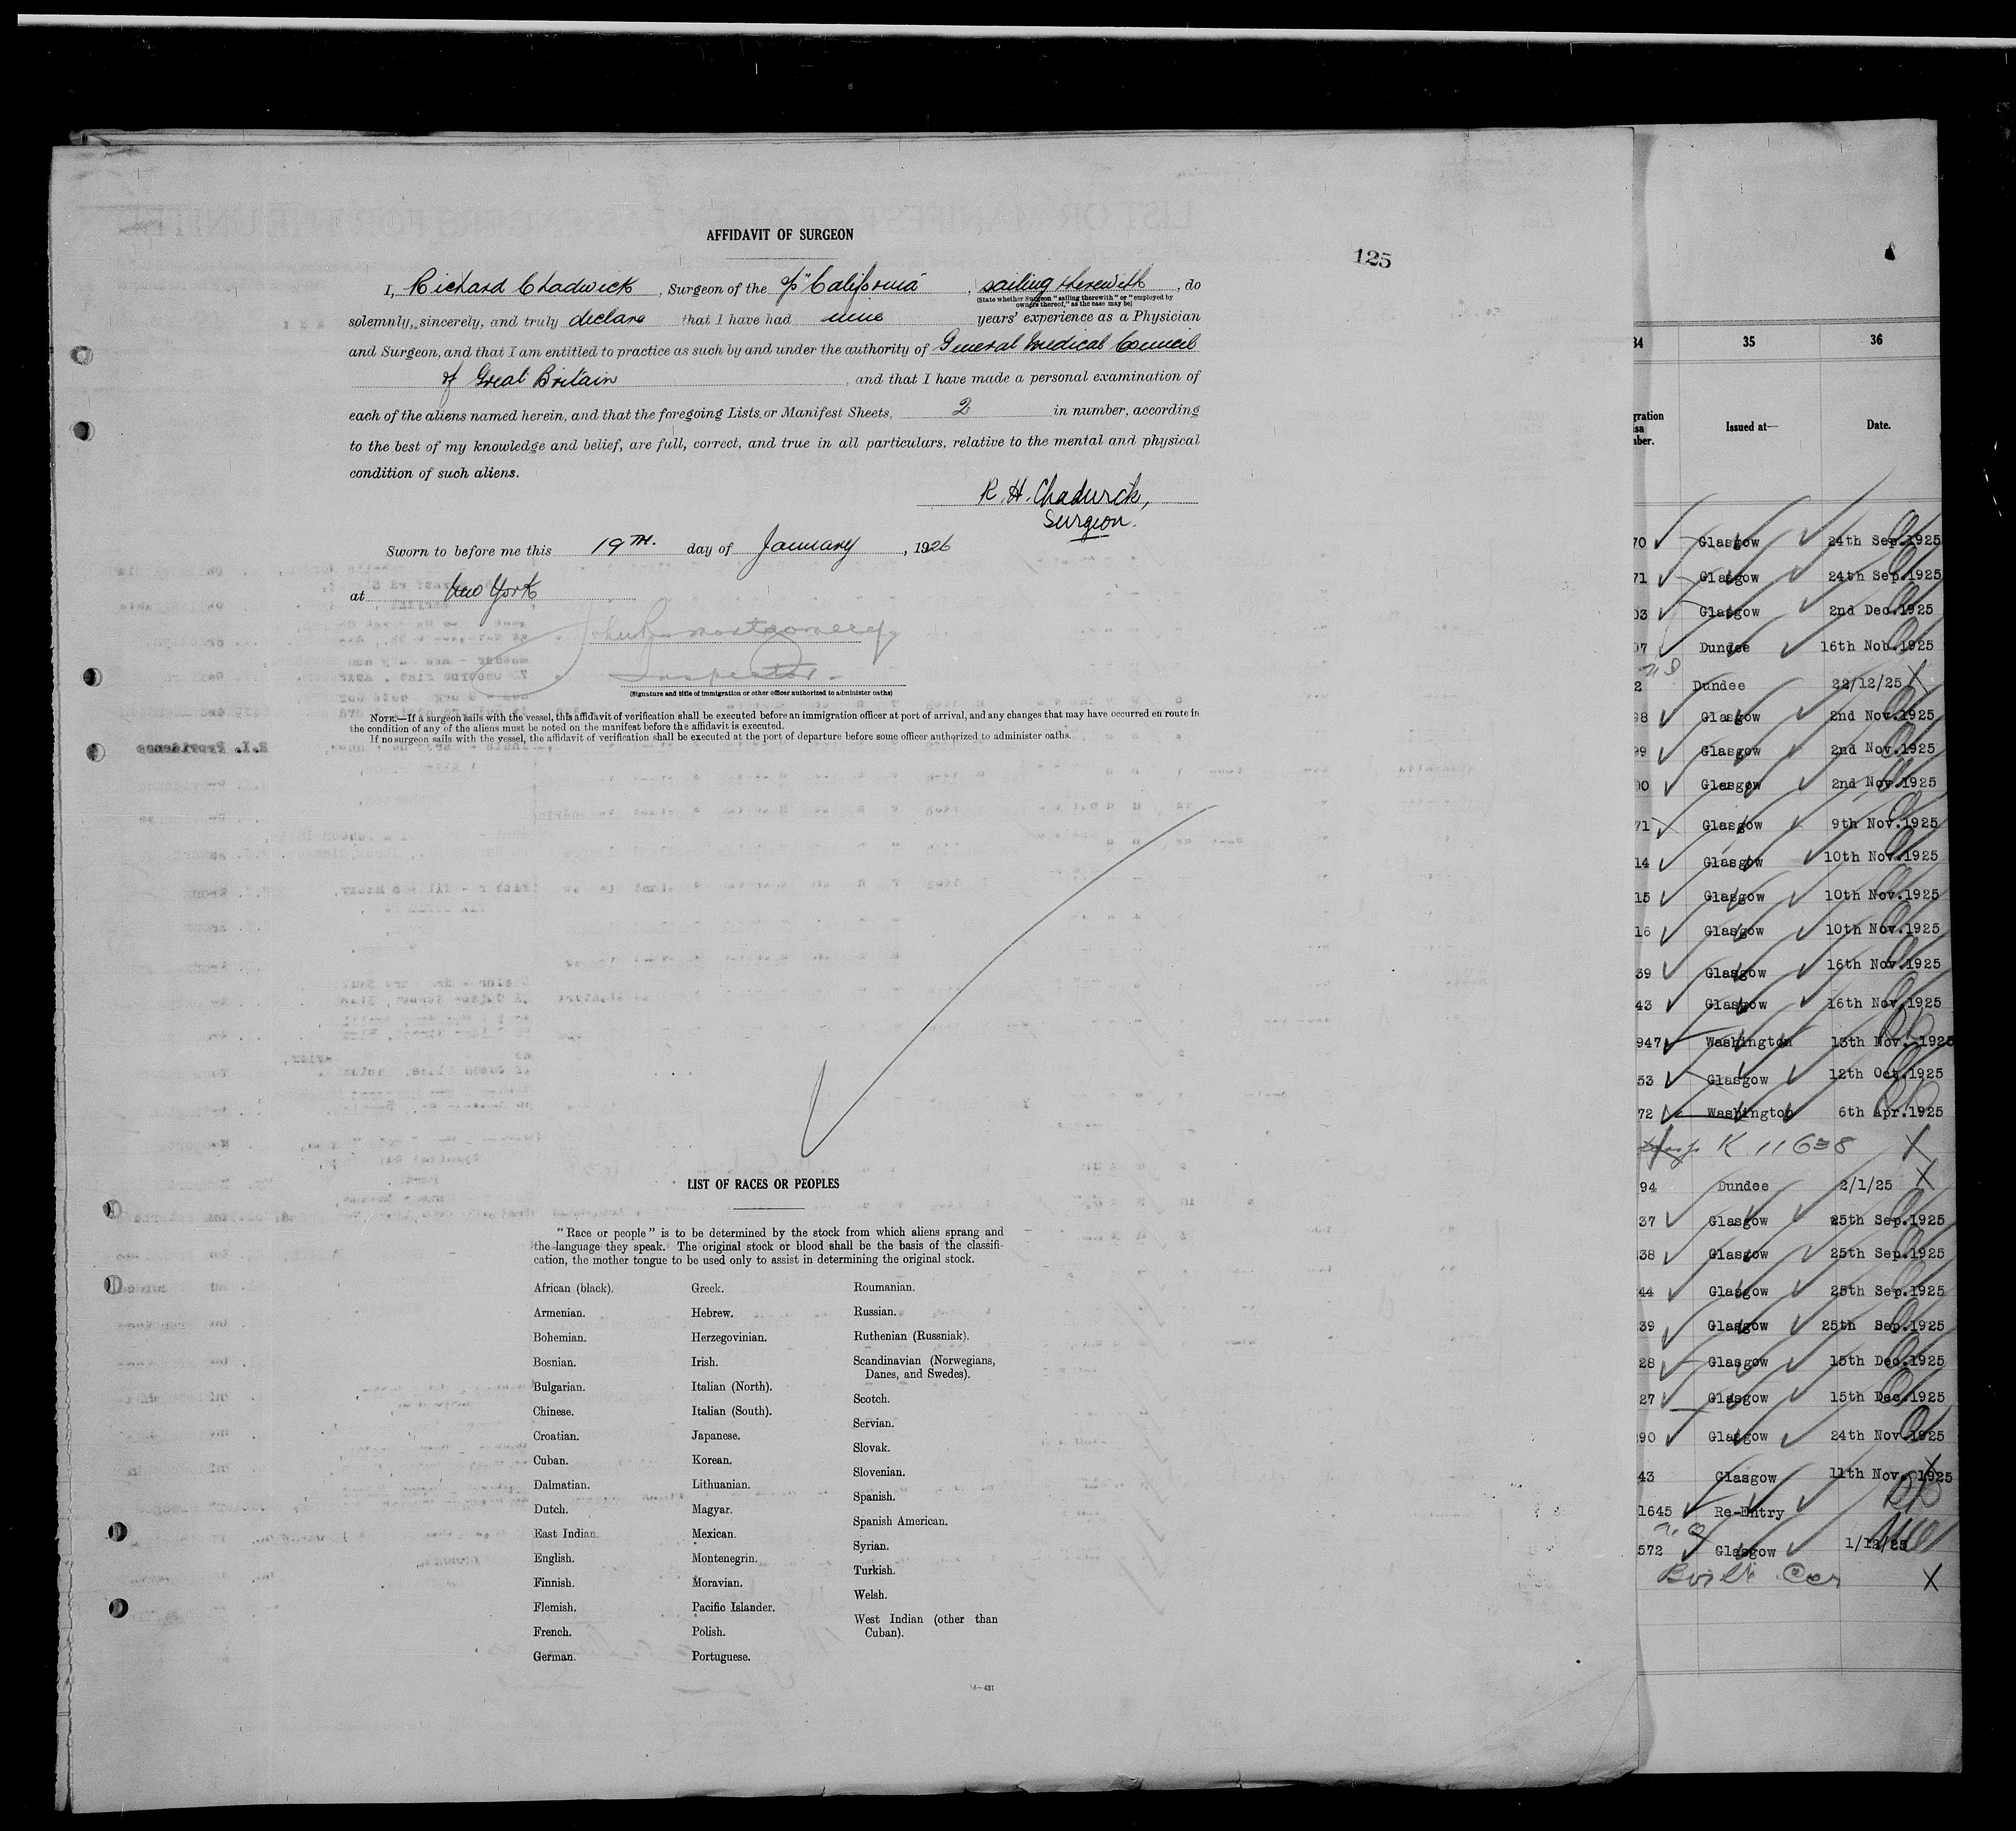 AFFIDAVIT OF SURGEON
125
I, Richard Chadwick, Surgeon of the "California", sailing therewith, do
(State whether Surgeon "sailing therewith" or "employed by
owners thereof," as the case may be)
solemnly, sincerely, and truly declare that I have had nine years' experience as a Physician
and Surgeon, and that I am entitled to practice as such by and under the authority of General Medical Council
of Great Britain, and that I have made a personal examination of
each of the aliens named herein, and that the foregoing Lists or Manifest Sheets, 2 in number, according
to the best of my knowledge and belief, are full, correct, and true in all particulars, relative to the mental and physical
condition of such aliens.
R. H. Chadwick,
Surgeon.
Sworn to before me this 19TH. day of January, 1926
at New York
Montgomery
Inspector
(Signature and title of immigration or other officer authorized to administer oaths)
NOTE.—If a surgeon sails with the vessel, this affidavit of verification shall be executed before an immigration officer at port of arrival, and any changes that may have occurred en route in
the condition of any of the aliens must be noted on the manifest before the affidavit is executed.
If no surgeon sails with the vessel, the affidavit of verification shall be executed at the port of departure before some officer authorized to administer oaths.
LIST OF RACES OR PEOPLES
"Race or people" is to be determined by the stock from which aliens sprang and
the language they speak. The original stock or blood shall be the basis of the classifi-
cation, the mother tongue to be used only to assist in determining the original stock.
African (black).
Armenian.
Bohemian.
Bosnian.
Bulgarian.
Chinese.
Croatian.
Cuban.
Dalmatian.
Dutch.
East Indian.
English.
Finnish.
Flemish.
French.
German.
Greek.
Hebrew.
Herzegovinian.
Irish.
Italian (North).
Italian (South).
Japanese.
Korean.
Lithuanian.
Magyar.
Mexican.
Montenegrin.
Moravian.
Pacific Islander.
Polish.
Portuguese.
Roumanian.
Russian.
Ruthenian (Russniak).
Scandinavian (Norwegians,
Danes, and Swedes).
Scotch.
Servian.
Slovak.
Slovenian.
Spanish.
Spanish American.
Syrian.
Turkish.
Welsh.
West Indian (other than
Cuban).
34 35 36
gration
isa
nber.
Issued at—
Date.
70 Glasgow 24th Sep.1925
71 Glasgow 24th Sep.1925
03 Glasgow 2nd Dec.1925
97 Dundee 16th Nob.1925
2 Dundee 22/12/25
98 Glasgow 2nd Nov.1925
99 Glasgow 2nd Nov.1925
00 Glasgow 2nd Nov.1925
71 Glasgow 9th Nov.1925
14 Glasgow 10th Nov.1925
15 Glasgow 10th Nov.1925
16 Glasgow 10th Nov.1925
39 Glasgow 16th Nov.1925
43 Glasgow 16th Nov.1925
947 Washington 13th Nov.-1925
53 Glasgow 12th Oct.1925
72 Washington 6th Apr.1925
K 11638
94 Dundee 2/1/25
37 Glasgow 25th Sep.1925
38 Glasgow 25th Sep.1925
44 Glasgow 25th Sep.1925
39 Glasgow 25th Sep.1925
28 Glasgow 15th Dec.1925
27 Glasgow 15th Dec.1925
90 Glasgow 24th Nov.1925
43 Glasgow 11th Nov. 1925
1645 Re-Entry
572 Glasgow 1/12/25